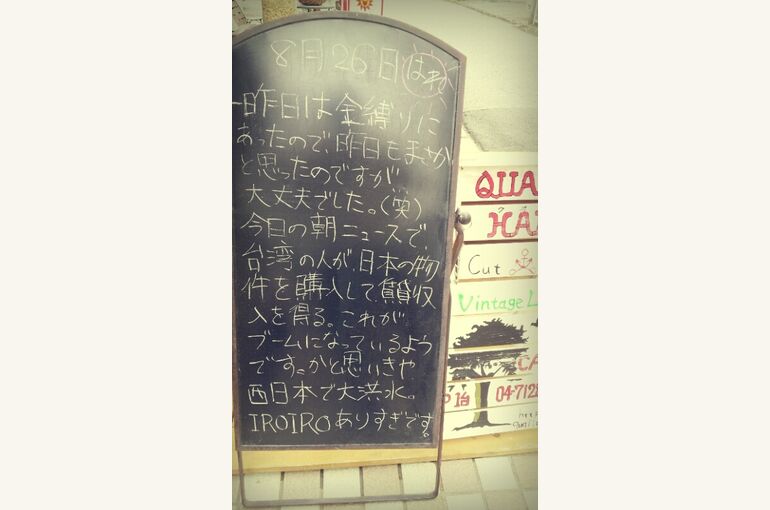 8月26日 はれ
一昨日は金縛りに
あったので、昨日もまさか
と思ったのですが
大丈夫でした。(笑)
今日の朝ニュースで、
台湾の人が、日本の物
件を購入して、賃貸収
入を得る。これが
ブームになっているよう
です。かと思いきや
西日本で大洪水。
IROIROありすぎです。
QUA
HA
Cut
Vintage L
CA
04-712